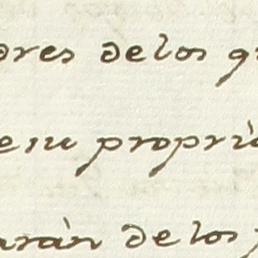 dres de los q
e su propri
arán de los